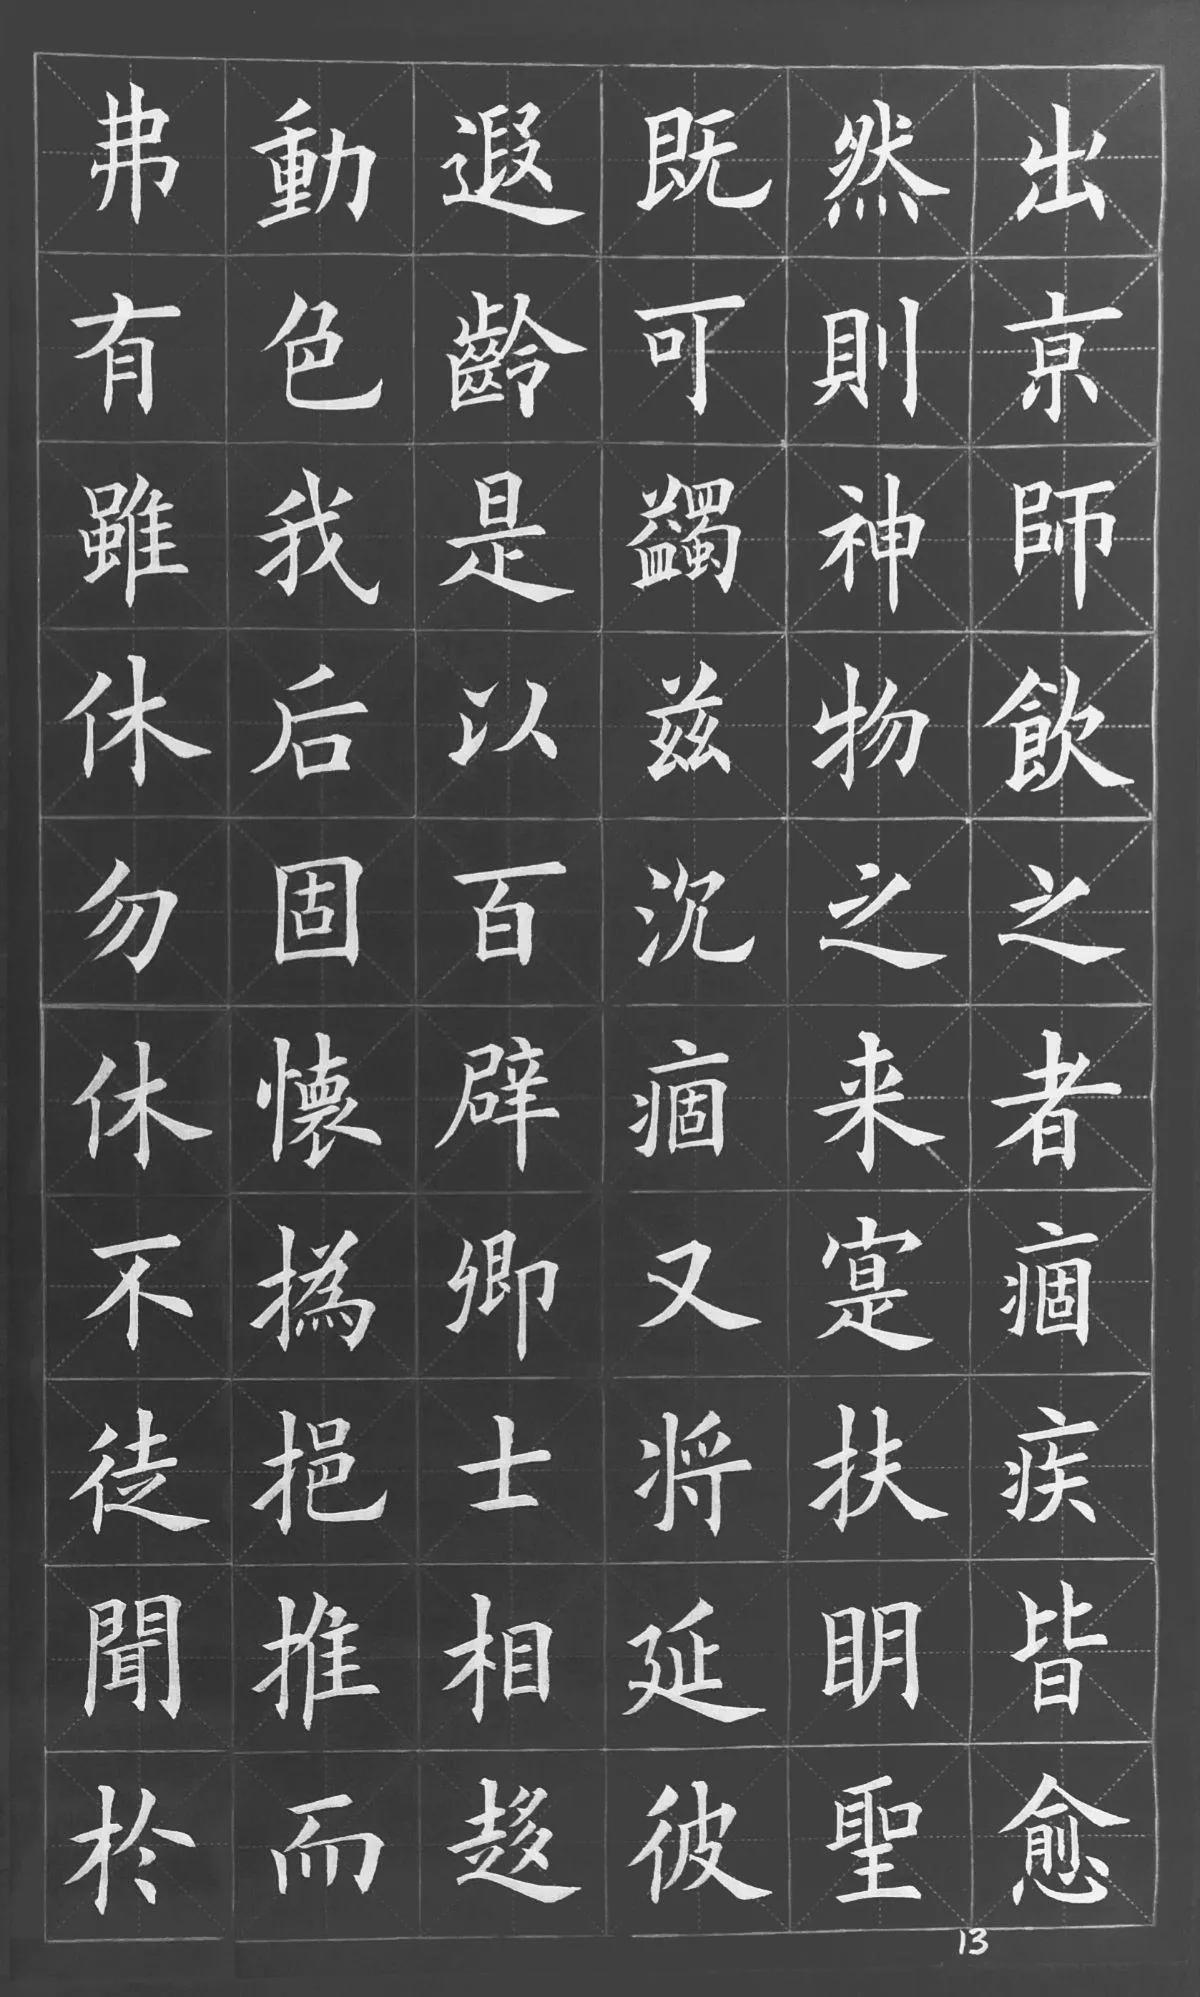 出京師飲之者痼疾皆愈
然則神物之来寔扶明聖
既可蠲茲沉痼又将延彼
遐齡是以百辟卿士相趍
動色我后固懷撝挹推而
弗有雖休勿休不徒聞於
13